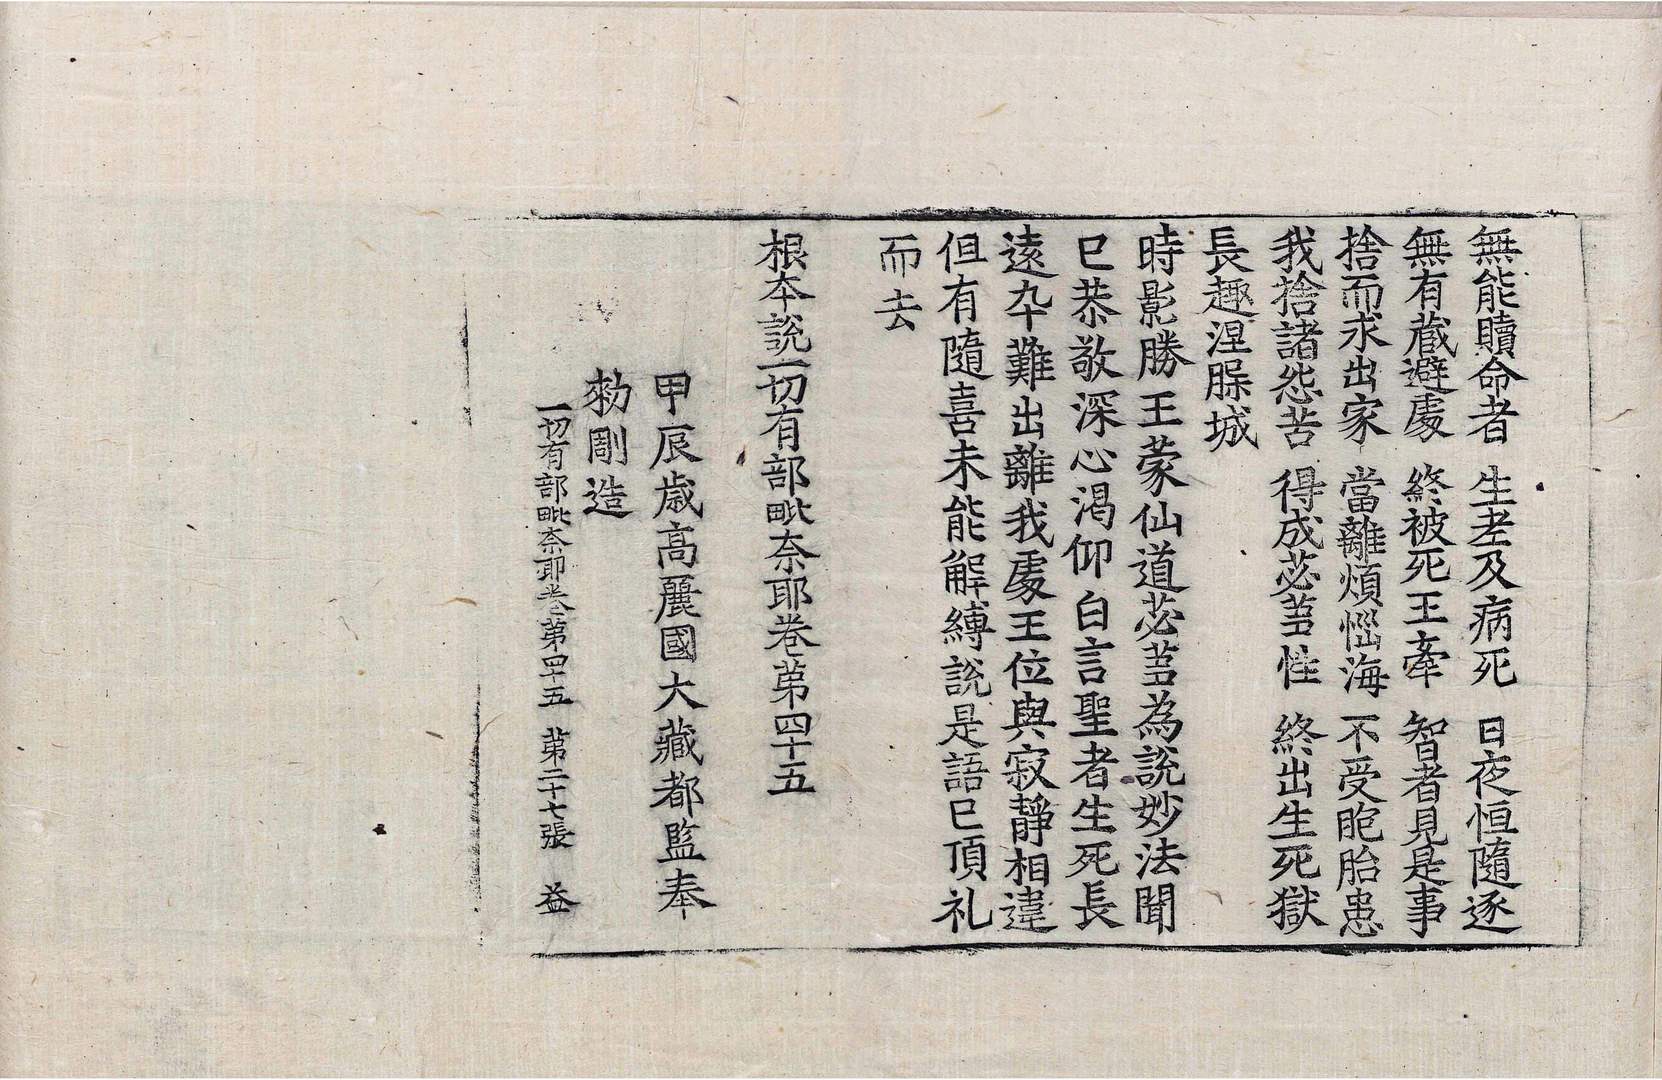 無能贖命者 生老及病死 日夜恒隨逐
無有蔵避處 終被死王牽 智者見是事
捨而求出家 當離煩惱海 不受胞胎患
我捨諸怨苦 得成苾芻性 終出生死獄
長趣涅槃城
時影勝王蒙仙道苾芻為說妙法聞
已恭敬深心渴仰白言聖者生死長
遠卒難出離我處王位與寂靜相違
但有隨喜未能解縛說是語已頂礼
而去
根本說一切有部毗奈耶卷第四十五
甲辰歳高麗國大藏都監奉
勑彫造
一切有部毗奈耶卷第四十五 第二十七張 益